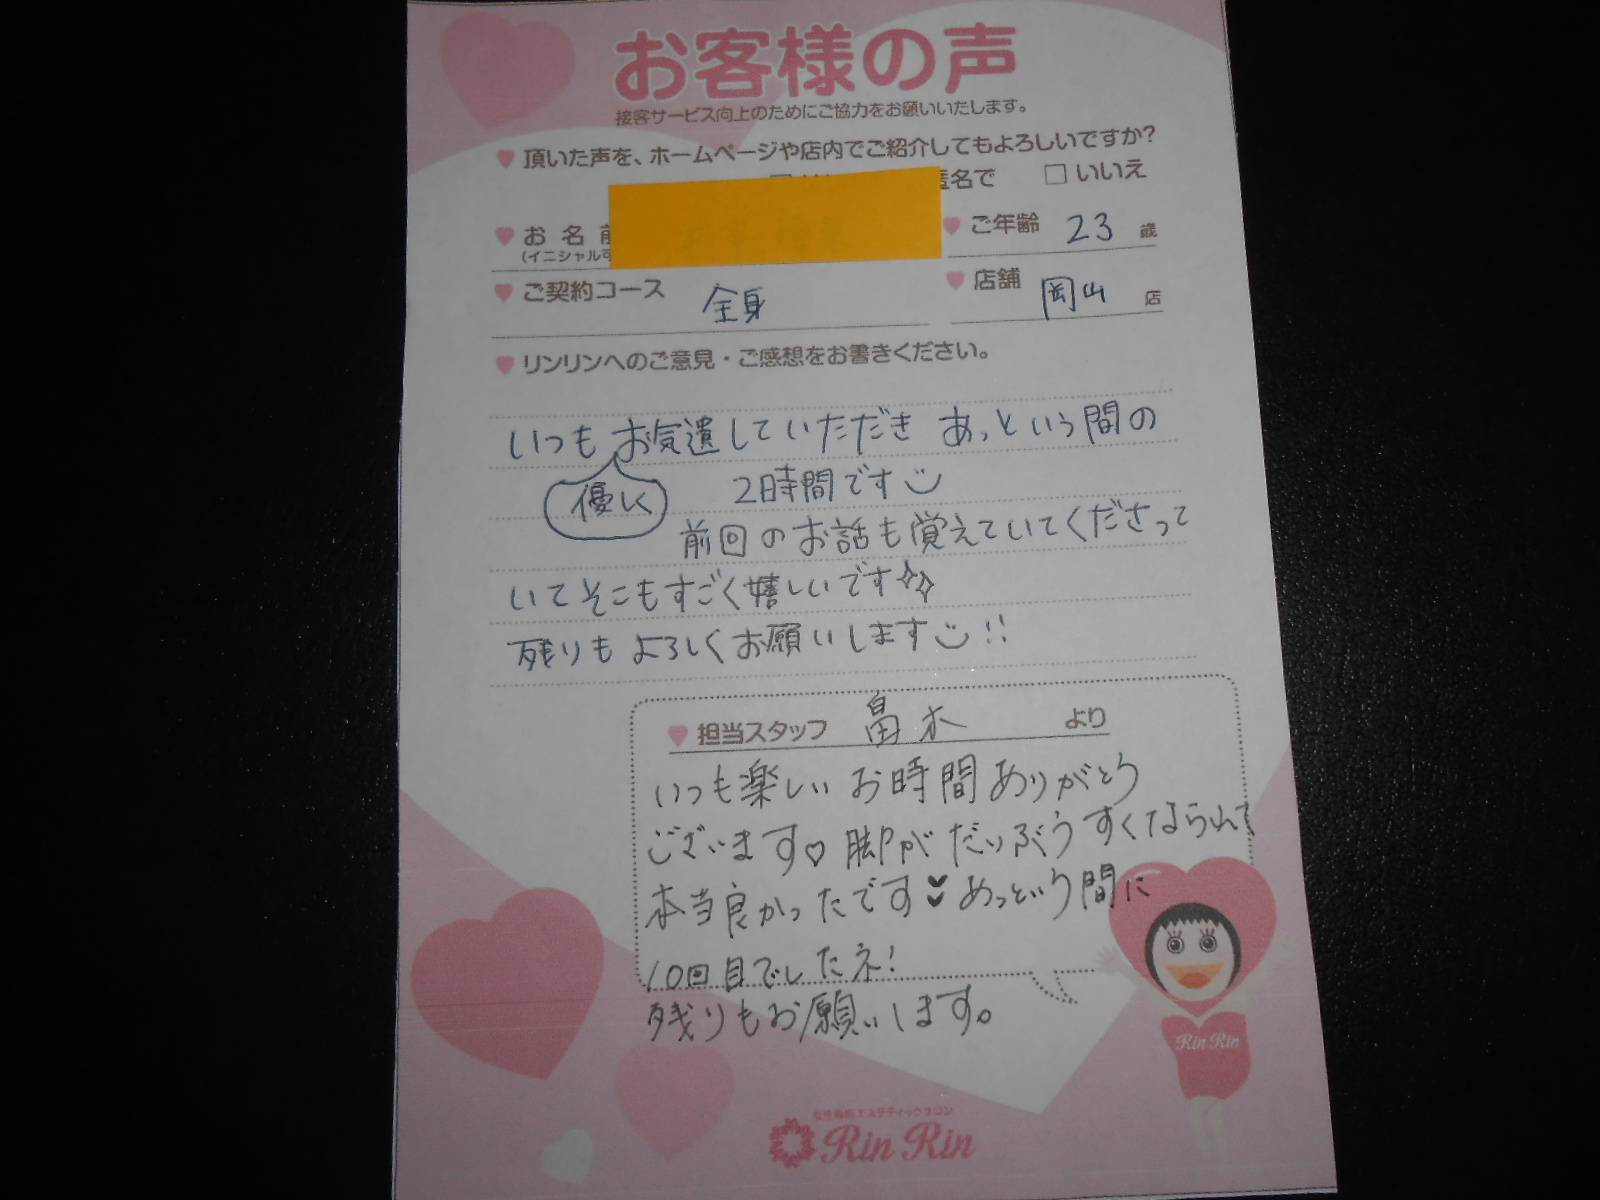 お客様の声
接客サービス向上のためにご協力をお願いいたします。
頂いた声を、ホームページや店内でご紹介してもよろしいですか?
名で □ いいえ
お名前
(イニシャル可
ご年齢 23 歳
ご契約コース 全身
店舗 岡山 店
リンリンへのご意見・ご感想をお書きください。
いつもお気遣していただき あっという間の
優しく 2時間です
前回のお話も覚えていてくださって
いてそこもすごく嬉しいです
残りもよろしくお願いします!!
担当スタッフ 畠木 より
いつも楽しいお時間ありがとう
ございます♡ 脚がだいぶうすくなられて
本当良かったです♥ あっという間に
10回目でしたネ!
残りもお願いします。
Rin Rin
女性専用エステティックサロン
Rin Rin